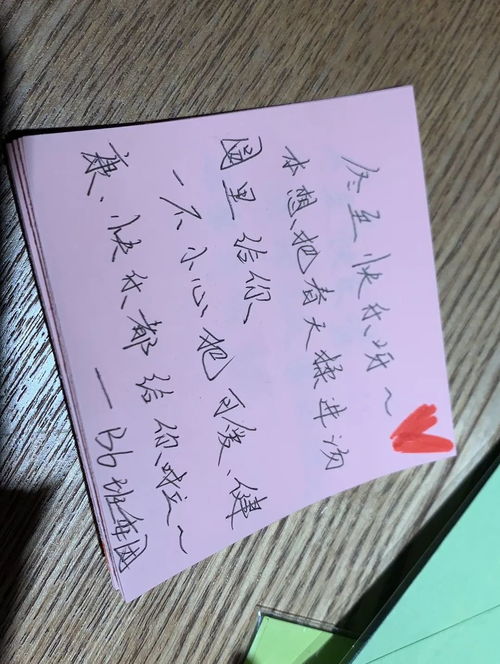 冬至快乐呀~
本想把春天揉进汤
圆里给你、
一不小心把可爱、健
康、快乐都给你啦~
——B6班